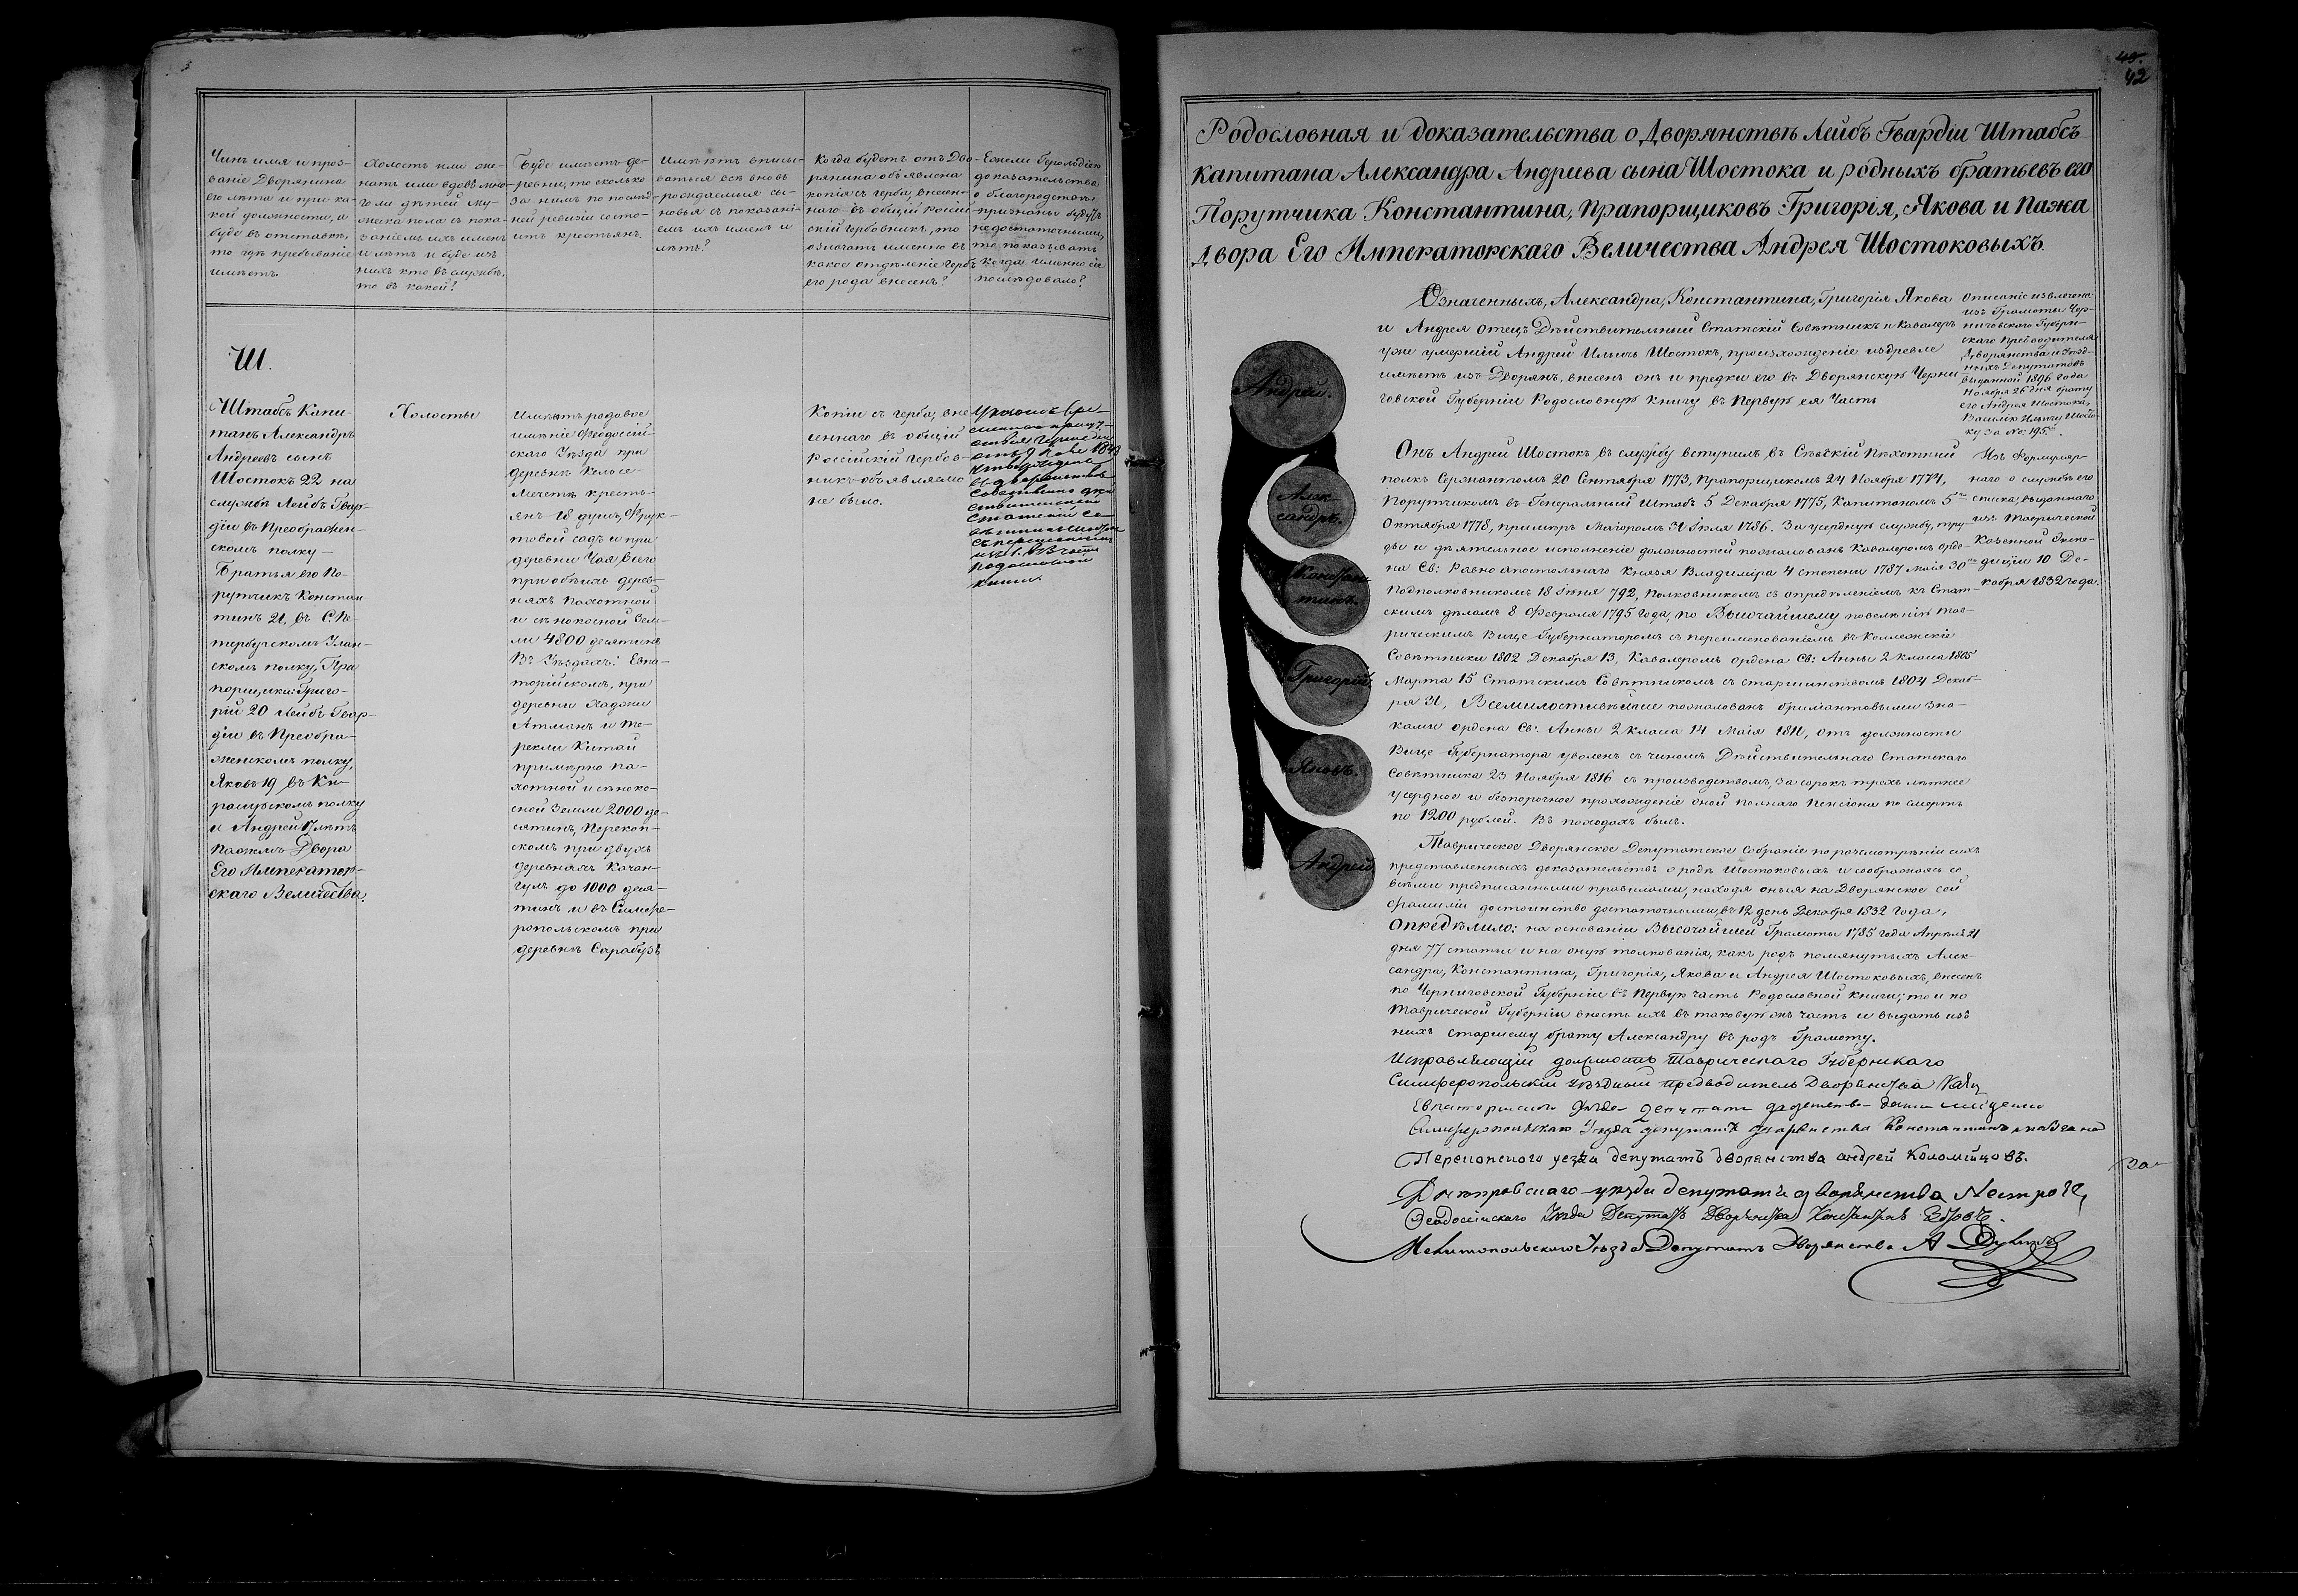 Чинъ имя и проз-
ваніе Дворянина
его лѣта и при ка-
кой должности, а
буде въ отставкѣ,
то гдѣ пребываніе
имѣетъ.
Холостъ или же-
натъ или вдовъ мно-
го ли дѣтей му-
жеска пола съ пока-
заніемъ ихъ именъ
и лѣтъ и буде изъ
нихъ кто въ службѣ,
то въ какой?
Буде имѣетъ де-
ревни, то сколько
за нимъ по послѣд-
ней ревизіи состо-
итъ крестьянъ.
Имѣетъ вписы-
ваться всѣ вновь
рождаемыя сы-
новья съ показані-
емъ ихъ именъ и
лѣтъ?
Когда будетъ отъ Дво-
рянина объявлена
копія съ герба, внесен-
наго въ общій Россій-
скій Гербовникъ, то
означать именно въ
какое отдѣленіе Гербъ
его рода внесенъ?
Ежели Герольдіею
доказательства
о благородствѣ
признаны будутъ
недостаточными,
то показывать
когда именно сіе
послѣдовало?
Ш.
Штабсъ Капи-
танъ Александръ
Андреевъ сынъ
Шостокъ 22 на
службѣ Лейбъ Гвар-
діи въ Преображен-
скомъ полку —
Братья его По-
рутчикъ Констан
тинъ 21, въ С.Пе-
тербургскомъ Улан-
скомъ полку, Пра
порщики: Григо-
рій 20 Лейбъ Гвар-
діи въ Преобра-
женскомъ полку,
Яковъ 19 въ Ки-
расирскомъ полку
и Андрей 17 лѣтъ
пажемъ Двора
Его Император-
скаго Величества.
Холосты
Имѣютъ родовое
имѣніе Феодосій-
скаго Уѣзда при
деревнѣ
Мечетъ кресть-
янъ 18 душъ, Фрук-
товой садъ и при
деревни всего
при объихъ дерев-
няхъ пахотной
и сѣнокосной зем-
ли 4800 десятинъ
Въ Уѣздахъ: Евпа-
торійскомъ, при
деревни Хаджи
Атманъ и Те-
рекли Китай
примѣрно па-
хотной и сѣноко-
сной земли 2000 де-
сятинъ, Перекоп-
скомъ при двухъ
деревняхъ Качан-
гулъ до 1000 деся-
тинъ и въ Симфе-
ропольскомъ при
деревнѣ Сарабузъ
Копіи съ герба, вне
сеннаго въ общій
Россійскій Гербов-
никъ объявляемо
не было.
Указомъ
отъ 9 1843
дворянствѣ
Статскій Со-
родословной
книги.
45.
42
Родословная и доказательства о Дворянствѣ Лейбъ Гвардіи Штабсъ
Капитана Александра Андреева сына Шостока и родныхъ братьевъ его
Порутчика Константина, Прапорщиковъ Григорія, Якова и Пажа
Двора Его Императорскаго Величества Андрея Шостоковыхъ.
Андрей.
Алек-
сандръ.
Констан-
тинъ.
Григорій.
Яковъ.
Андрей.
Означенныхъ, Александра, Константина, Григорія Якова
и Андрея отецъ Дѣйствительный Статскій Совѣтникъ и Кавалеръ
уже умершій Андрей Ильичъ Шостокъ, произхожденіе издревле
имѣетъ изъ Дворянъ, внесенъ онъ и предки его въ Дворянскую Черни-
говской Губерніи Родословную книгу въ Первую ея Часть
Описаніе извлечено
изъ Грамоты Чер-
ниговскаго Губерн-
скаго Предводителя
Дворянства и Уѣзд-
ныхъ Депутатовъ
выданной 1806 года
Ноября 26 дня брату
его Андрея Шостока
Василію Ильичу Шосто-
ку за No: 195.
Онъ Андрей Шостокъ въ службу вступилъ въ Сѣвскій Пѣхотный
полкъ Сержантомъ 20 Сентября 1773, Прапорщикомъ 24 Ноября 1774,
Порутчикомъ въ Генеральный Штабъ 5 Декабря 1775, Капитаномъ 5го
Октября 1778, примьеръ Маіоромъ 31 Іюля 1786. За усердную службу, тру-
ды и дѣятельное исполненіе должностей пожалованъ Кавалеромъ орде-
на Св: Равноапостольнаго Князя Владиміра 4 степени 1787 Маія 30го
Подполковникомъ 18 Іюня 792, Полковникомъ съ опредѣленіемъ къ Стат-
скимъ дѣламъ 8 Февраля 1795 года, по Высочайшему повелѣнію Тав-
рическимъ Вице Губернаторомъ съ переименованіемъ въ Коллежскіе
Совѣтники 1802 Декабря 13, Кавалеромъ ордена Св: Анны 2 класа 1805
Марта 15 Статскимъ Совѣтникомъ съ старшинствомъ 1804 Декаб-
ря 31, Всемилостивѣйше пожалованъ бриліантовыми зна-
ками ордена Св: Анны 2 класа 14 Маія 1811, отъ должности
Вице Губернатора уволенъ съ чиномъ Дѣйствительнаго Статскаго
Совѣтника 23 Ноября 1816 съ производствомъ, за сорокъ трехъ лѣтнее
усердное и безпорочное прохожденіе оной полнаго пенсіона по смерть
по 1200 рублей. Въ походахъ былъ.
Изъ Формуляр-
наго о службѣ его
списка, выданнаго
изъ Таврической
Казенной Экспе-
диціи 10 Де-
кабря 1832 года.
Таврическое Дворянское Депутатское Собраніе по разсмотрѣніи сихъ
представленныхъ доказательствъ о родѣ Шостоковыхъ и соображаясь со
всѣми предписанными правилами, находя оныя на Дворянское сей
фамиліи достоинство достаточными, въ 12 день Декабря 1832 года,
Опредѣлило: на основаніи Высочайшей Грамоты 1785 года Апрѣля 21
дня 77 статьи и на оную толкованія, какъ родъ помянутыхъ Алек-
сандра, Константина, Григорія, Якова и Андрея Шостоковыхъ, внесенъ
по Черниговской Губерніи въ Первую часть Родословной книги; то и по
Таврической Губерніи внесть ихъ въ таковую жъ часть и выдать изъ
нихъ старшему брату Александру въ родъ Грамоту.
Исправляющій должность Таврическаго Губернскаго
Симферопольскій уѣздный предводитель Дворянства
Евпаторійскаго уѣзда депутатъ дворянства
Симферопольскаго Уѣзда депутатъ дворянства Константинъ
Перекопского уезда депутатъ дворянства андрей Коломійцовъ.
Днѣпровскаго уѣзда депутатъ дворянства
Феодосійскаго Уѣзда Депутатъ Дворянства
Мелитопольскаго Уѣзда Депутатъ Дворянства А